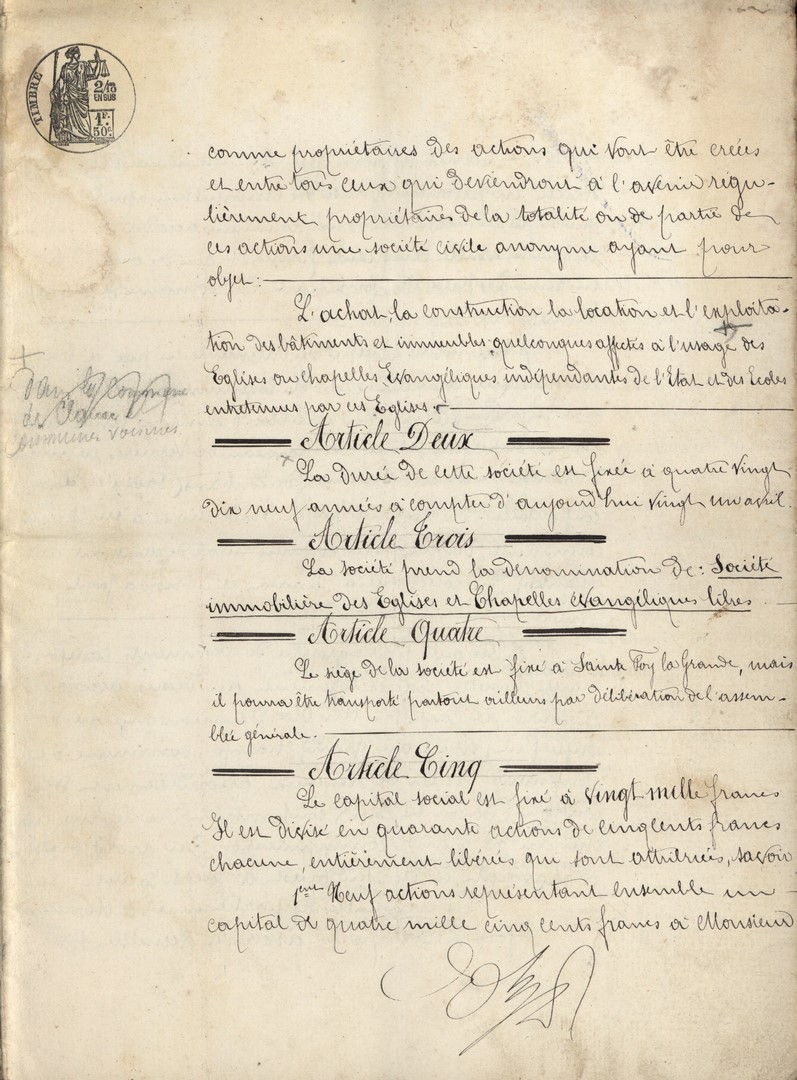 TIMBRE
2/10
EN SUS
1F.
50c.
comme propriétaires des actions qui vont être créées
et entre tous ceux qui deviendront à l'avenir régu-
lièrement propriétaires de la totalité ou de partie de
ces actions une société civile anonyme ayant pour
objet :
L'achat, la construction la location et l'exploita-
tion des bâtiments et immeubles quelconques affectés à l'usage des
Eglises ou chapelles Evangéliques indépendantes de l'Etat et des Ecoles
entretenues par ces Eglises
communes voisines
Article Deux
La durée de cette société est fixée à quatre vingt
dix neuf années à compter d'aujourd'hui vingt un avril.
Article Trois
La société prend la dénomination de : Société
immobilière des Eglises et Chapelles évangéliques libres.
Article Quatre
Le siège de la société est fixé à Sainte Foy la Grande, mais
il pourra être transporté partout ailleurs par délibération de l'assem-
blée générale.
Article Cinq
Le capital social est fixé à vingt mille francs
Il est divisé en quarante actions de cinq cents francs
chacune, entièrement libérées qui sont attribuées, savoir
1ent Neuf actions représentant ensemble un
capital de quatre mille cinq cents francs à Monsieur